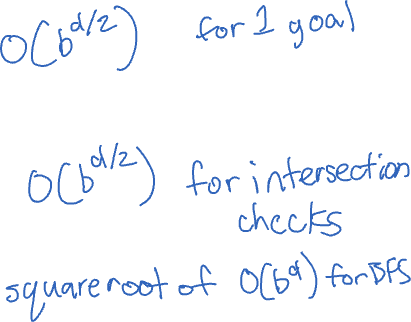 O(b^d/2) for 1 goal
O(b^d/2) for intersection
checks
square root of O(b^d) for BFS